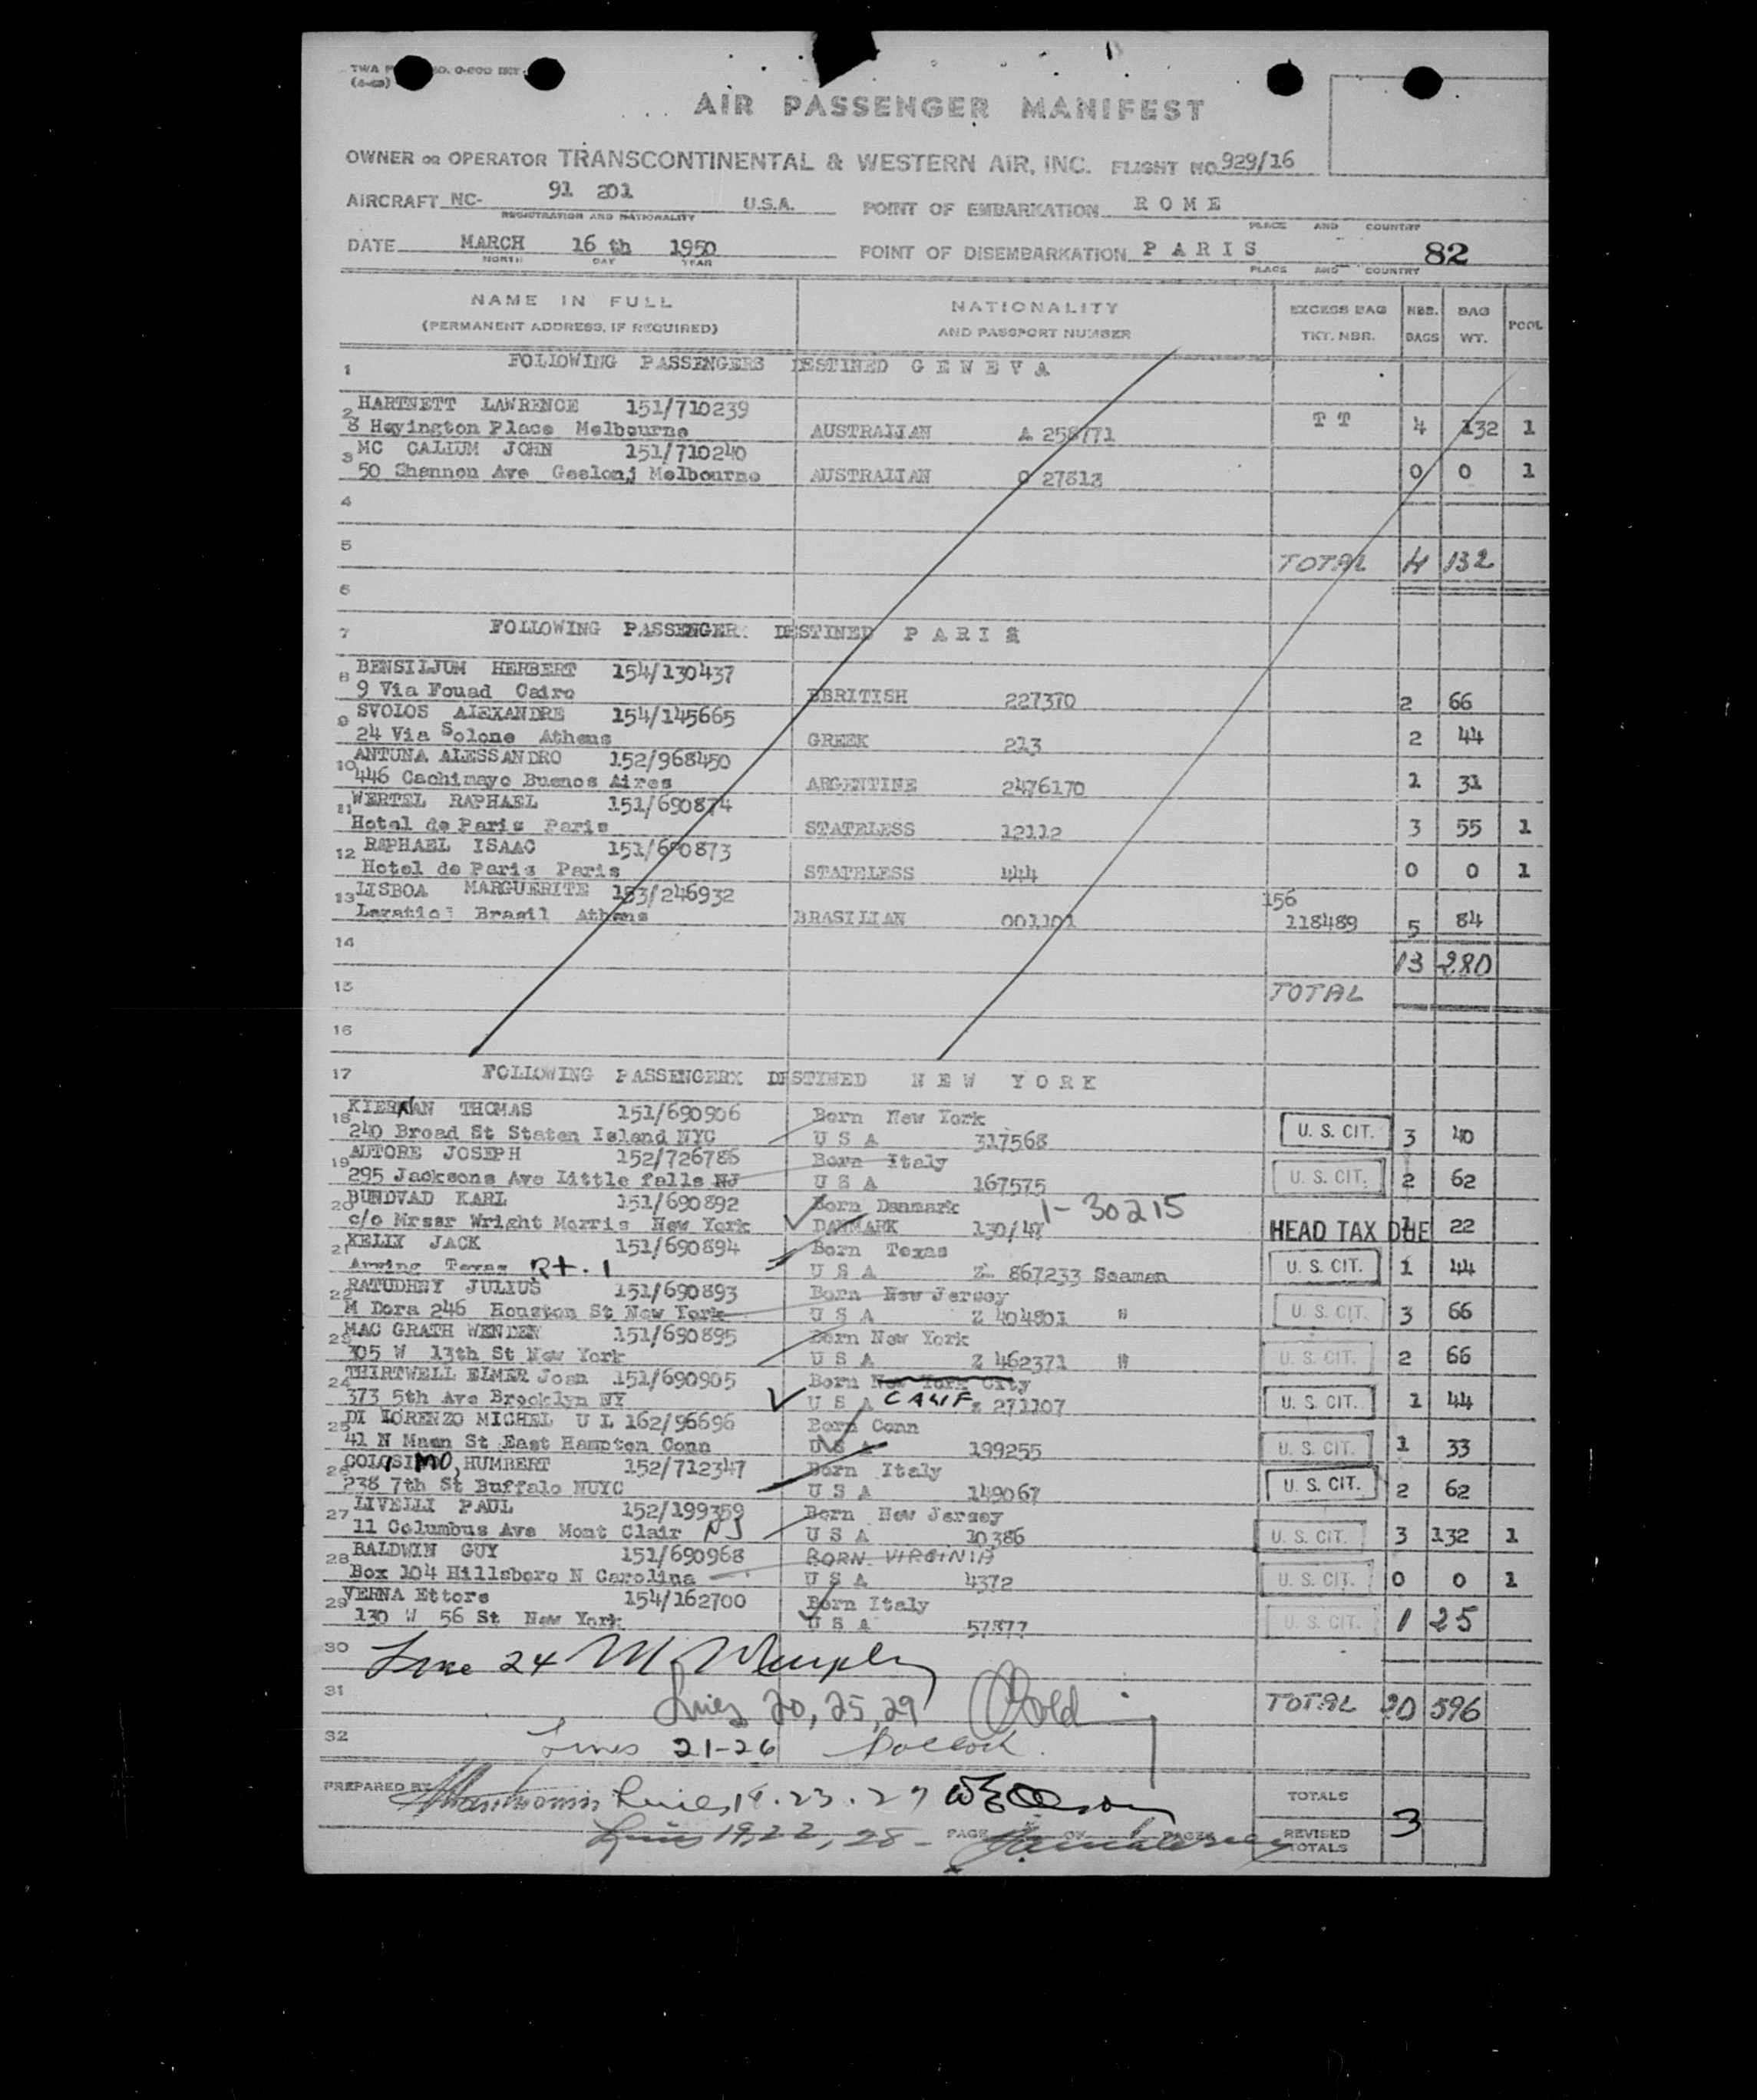 TWA NO. 0-200 INT
AIR PASSENGER MANIFEST
OWNER OR OPERATOR TRANSCONTINENTAL & WESTERN AIR, INC. FLIGHT NO. 929/16
AIRCRAFT NC- 91 201 U.S.A. POINT OF EMBARKATION R O M E
REGISTRATION AND NATIONALITY PLACE AND COUNTRY
DATE MARCH 16 th 1950 POINT OF DISEMBARKATION P A R I S 82
MONTH DAY YEAR PLACE AND COUNTRY
NAME IN FULL NATIONALITY EXCESS BAG NBR. BAG POOL
(PERMANENT ADDRESS, IF REQUIRED) AND PASSPORT NUMBER TKT. NBR. BAGS WT.
1 FOLLOWING PASSENGERS DESTINED G E N E V A
HARTNETT LAWRENCE 151/710239
2 8 Heyington Place Melbourne AUSTRALIAN A 258771 T T 4 132 1
MC CALIUM JOHN 151/710240
3 50 Shannon Ave Geelonj Melbourne AUSTRALIAN 27813 0 0 1
4
5 TOTAL 4 132
6
7 FOLLOWING PASSENGER DESTINED P A R I S
BENSILJUM HERBERT 154/130437
8 9 Via Fouad Cairo BBRITISH 227370 2 66
SVOLOS ALEXANDRE 154/145665
9 24 Via Solone Athens GREEK 213 2 44
ANTUNA ALESSANDRO 152/968450
10 446 Cachimayo Buenos Aires ARGENTINE 2476170 1 31
WERTEL RAPHAEL 151/690874
11 Hotel de Paris Paris STATELESS 12112 3 55 1
RAPHAEL ISAAC 151/690873
12 Hotel de Paris Paris STATELESS 444 0 0 1
LISBOA MARGUERITE 153/246932
13 Brasil Athens BRASILIAN 001101 156 118489 5 84
14 13 280
15 TOTAL
16
17 FOLLOWING PASSENGERX DESTINED N E W Y O R K
KIERNAN THOMAS 151/690906 Born New York
18 240 Broad St Staten Island NYC U S A 317568 U. S. CIT. 3 40
AUTORE JOSEPH 152/726786 Born Italy
19 295 Jacksons Ave Little falls NJ U S A 167575 U. S. CIT. 2 62
BUNDVAD KARL 151/690892 Born Danmark 1-30215
20 c/o Mrssr Wright Morris New York DANMARK 130/47 HEAD TAX DUE 1 22
KELLY JACK 151/690894 Born Texas
21 Arving Texas Rt. 1 U S A Z 867233 Seaman U. S. CIT. 1 44
RATUDHNY JULIUS 151/690893 Born New Jersey
22 M Dora 246 Houston St New York U S A Z 404801 " U. S. CIT. 3 66
MAC GRATH WENDEN 151/690895 Born New York
23 305 W 13th St New York U S A Z 462371 " U. S. CIT. 2 66
THIRTWELL ELMER Joan 151/690905 Born New York City
24 373 5th Ave Brooklyn NY U S A CALIF z 271107 U. S. CIT. 1 44
DI LORENZO MICHEL U L 162/96696 Born Conn
25 41 N Maen St East Hampton Conn U S A 199255 U. S. CIT. 1 33
COLOSIMO, HUMBERT 152/712347 Born Italy
26 238 7th St Buffalo NUYC U S A 149067 U. S. CIT. 2 62
LIVELLI PAUL 152/199359 Born New Jersey
27 11 Columbus Ave Mont Clair NJ U S A 10386 U. S. CIT. 3 132 1
BALDWIN GUY 151/690968 BORN VIRGINIA
28 Box 104 Hillsboro N Carolina U S A 4372 U. S. CIT. 0 0 1
VERNA Ettore 154/162700 Born Italy
29 130 W 56 St New York U S A 57877 U. S. CIT. 1 25
30 Line 24 M Murphy
31 Lines 20, 25, 29 Gold TOTAL 20 596
32 Lines 21-26 Pollock
PREPARED BY Lines 18. 23. 27 TOTALS
Lines 19, 22, 28 - PAGE OF PAGES REVISED TOTALS 3